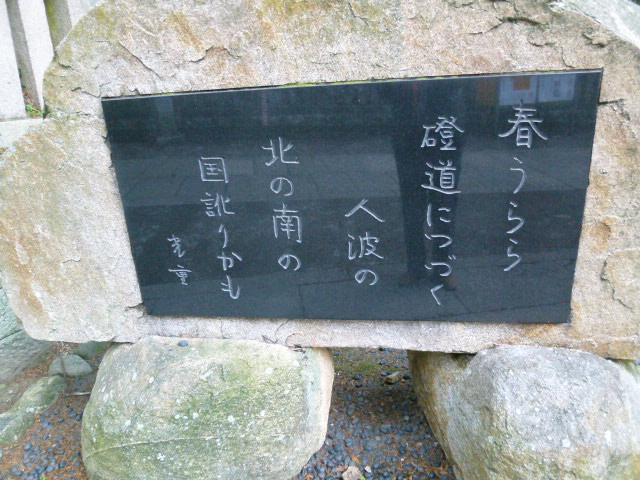 春うらら
磴道につづく
人波の
北の南の
国訛りかも
光重